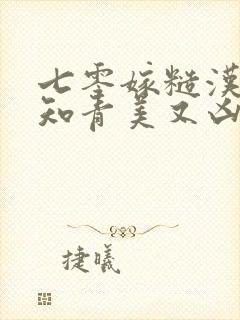 七零嫁糙漢
知青美又凶
捷曦